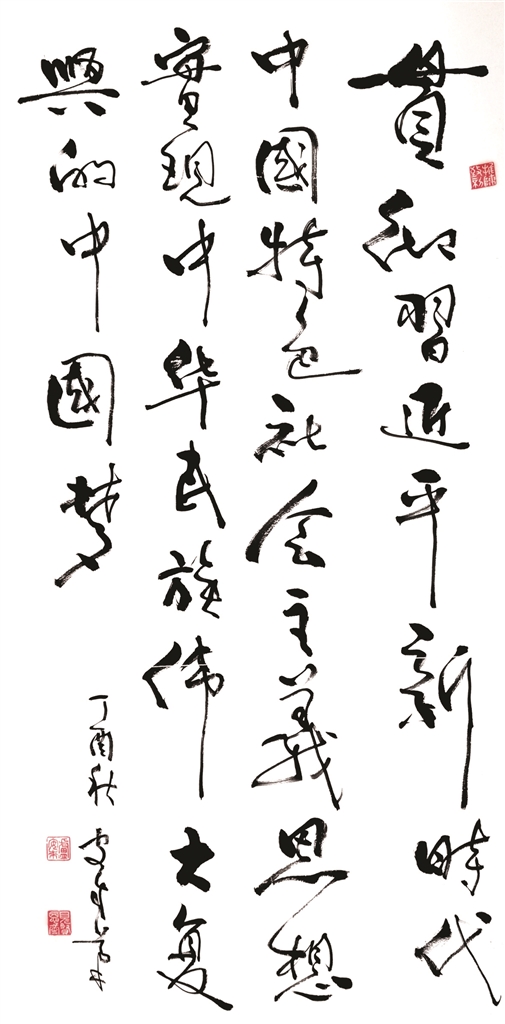 貫彻習近平新時代
中國特色社会主義思想
實現中华民族伟大复
興的中國梦
丁酉秋